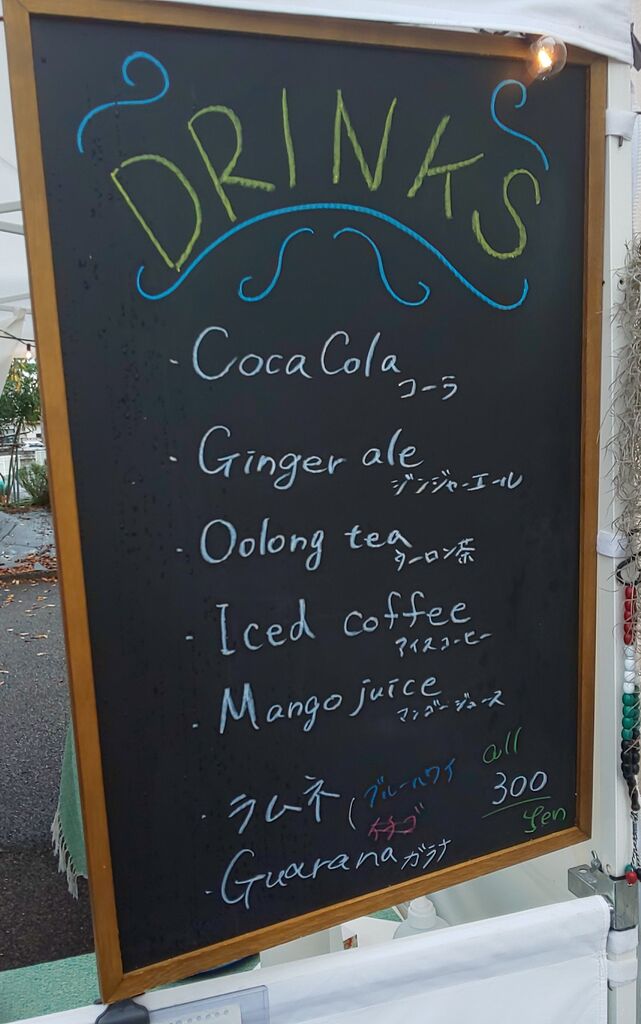 DRINKS
· Coca Cola
コーラ
· Ginger ale
ジンジャーエール
· Oolong tea
ウーロン茶
· Iced coffee
アイスコーヒー
· Mango juice
マンゴージュース
· ラムネ ( ブルーハワイ
イチゴ
· Guarana ガラナ
all
300
yen